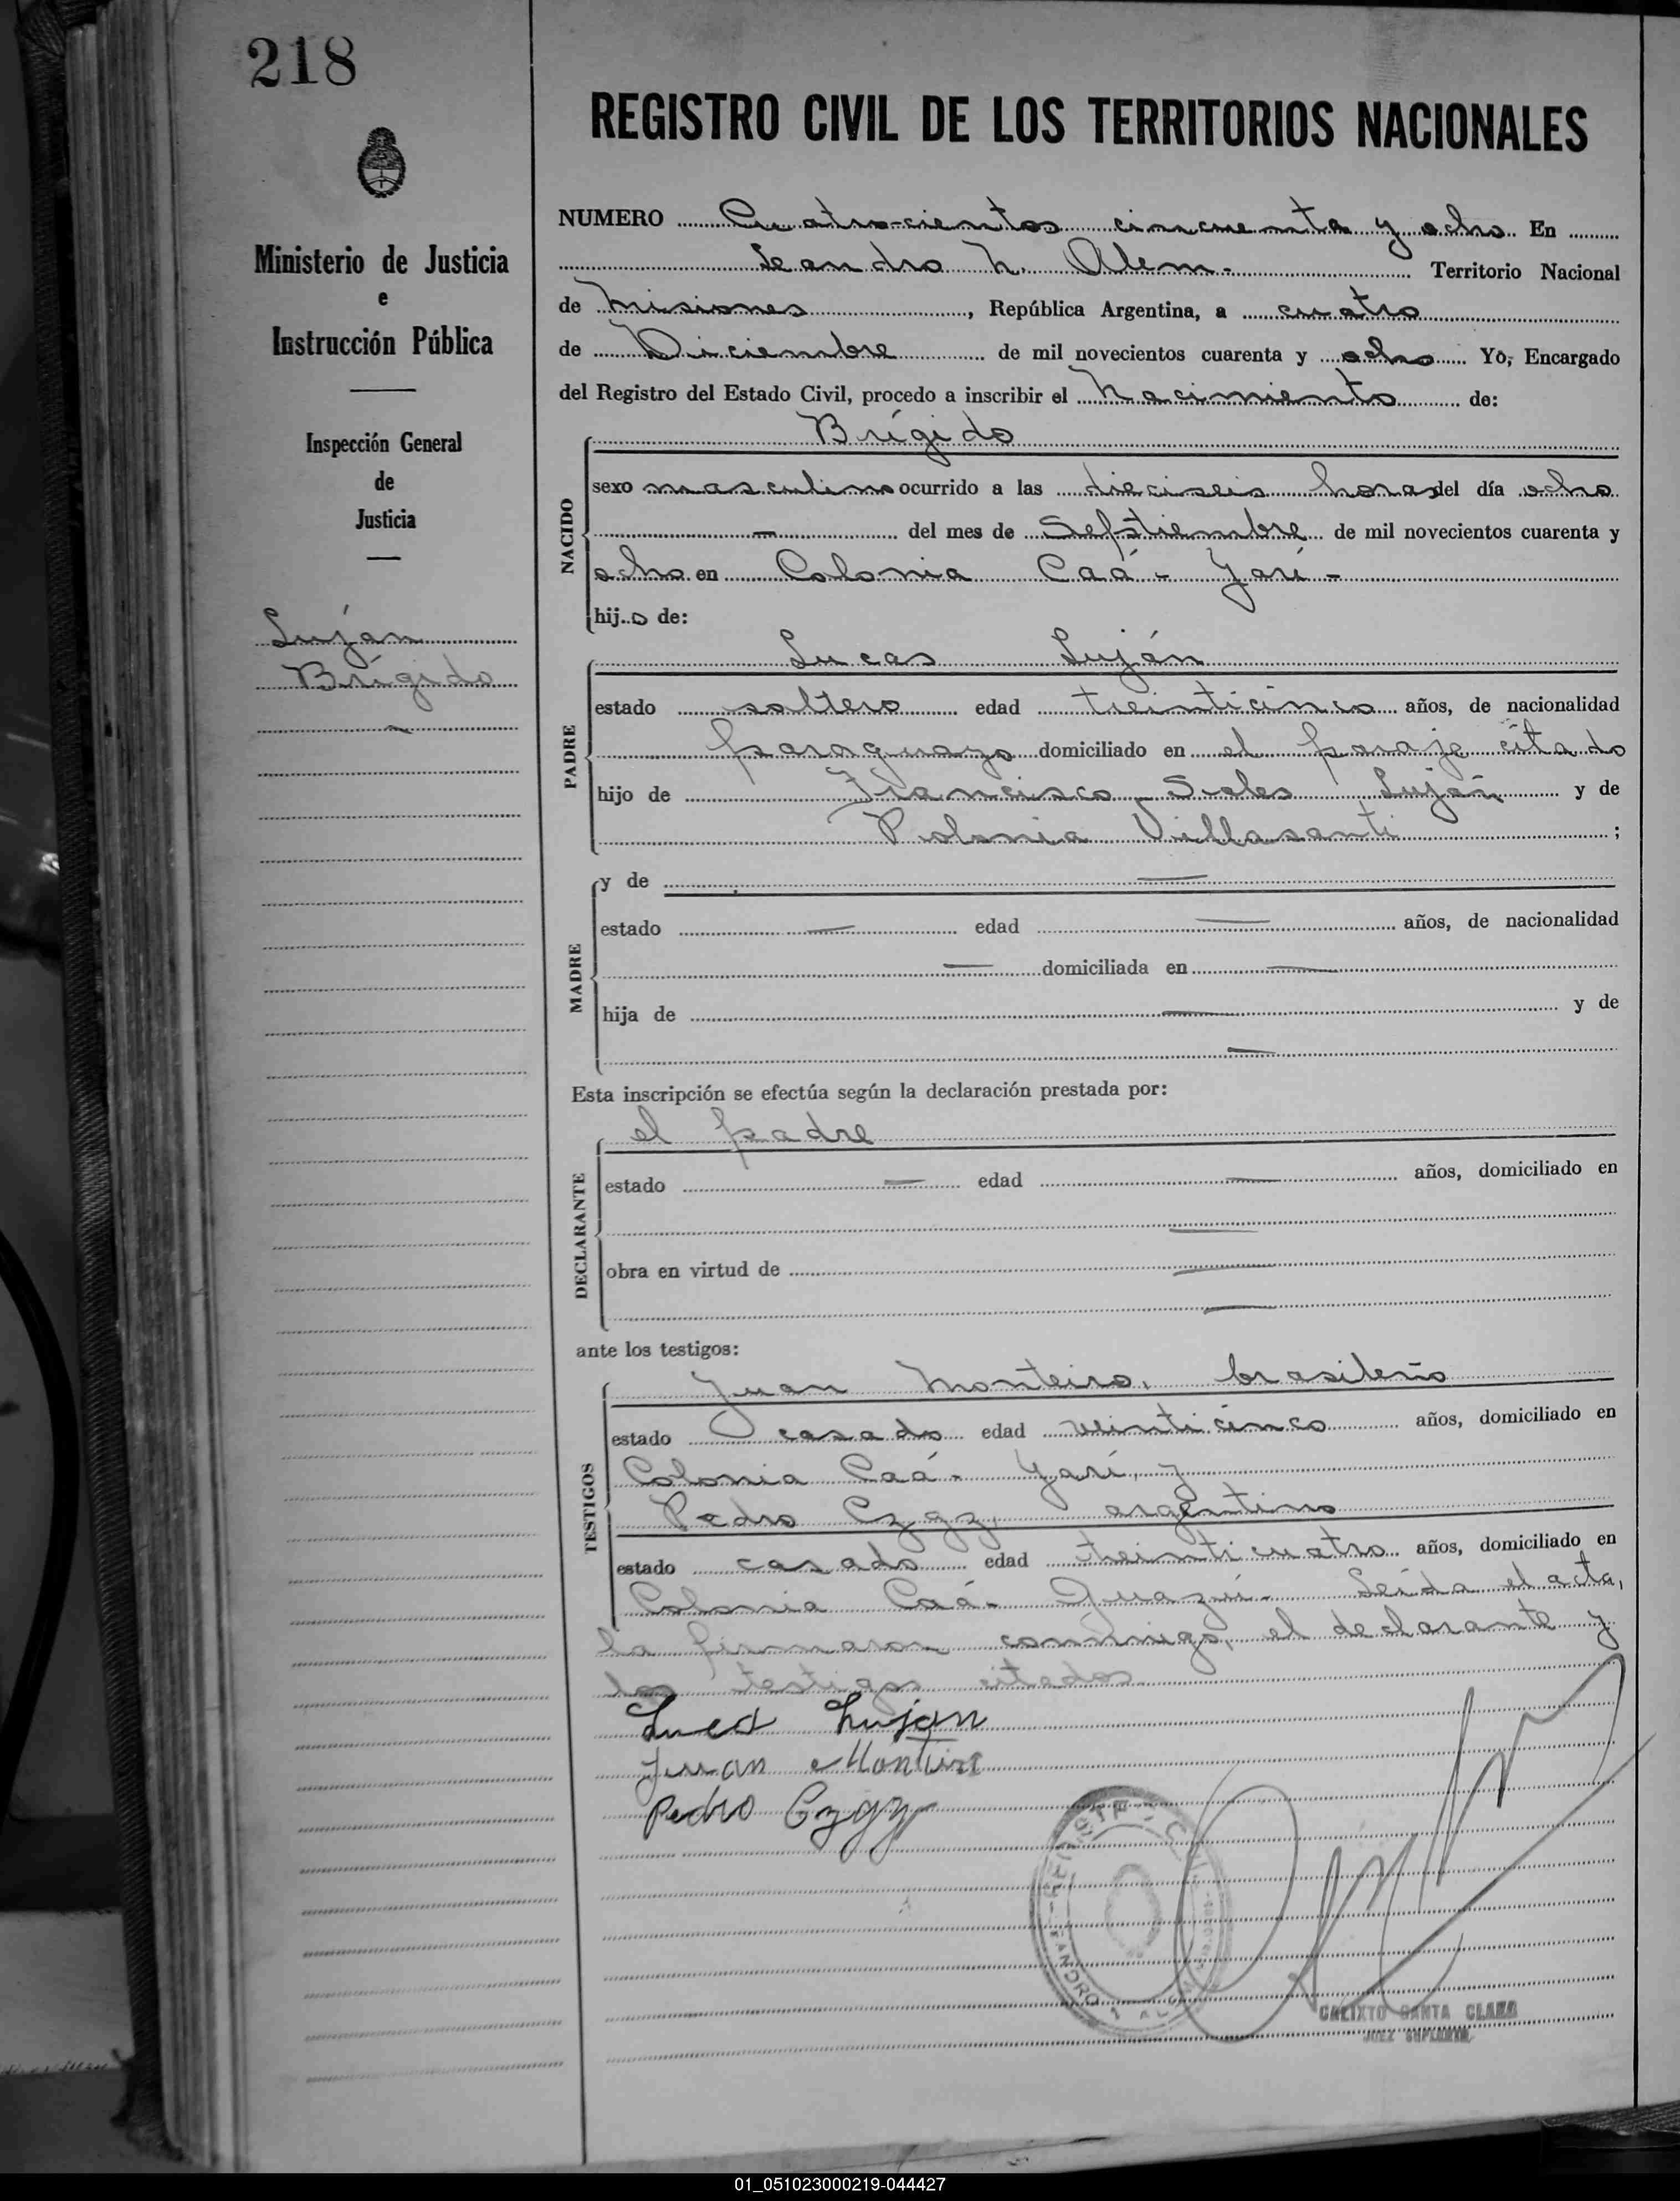 218
REGISTRO CIVIL DE LOS TERRITORIOS NACIONALES
Ministerio de Justicia
e
Instrucción Pública
Inspección General
de
Justicia
Luján
Brígido
NUMERO Cuatrocientos cincuenta y ocho En
Leandro N. Alem.- Territorio Nacional
de Misiones, República Argentina, a cuatro
de Diciembre de mil novecientos cuarenta y ocho Yo, Encargado
del Registro del Estado Civil, procedo a inscribir el Nacimiento de:
NACIDO
Brígido
sexo masculino ocurrido a las dieciseis horas del día ocho
- del mes de Septiembre de mil novecientos cuarenta y
ocho en Colonia Caá-Yarí-
hijo de:
PADRE
Lucas Luján
estado soltero edad treinticinco años, de nacionalidad
paraguayo domiciliado en el paraje citado
hijo de Francisco Sales Luján y de
Polonia Villasanti ;
MADRE
y de —
estado — edad — años, de nacionalidad
— domiciliada en —
hija de — y de
—
Esta inscripción se efectúa según la declaración prestada por:
DECLARANTE
el padre
estado — edad — años, domiciliado en
—
obra en virtud de —
—
ante los testigos:
TESTIGOS
Juan Monteiro, brasileño
estado casado edad veinticinco años, domiciliado en
Colonia Caá-Yarí, y
Pedro Czgz, argentino
estado casado edad treinticuatro años, domiciliado en
Colonia Caá-Guazú.- Leída el acta,
la firmaron conmigo, el declarante y
los testigos citados
Luca Lujan
Juan Monteiro
Pedro Czgz
CALIXTO SANTA CLARA
JUEZ SUPLENTE
01_051023000219-044427